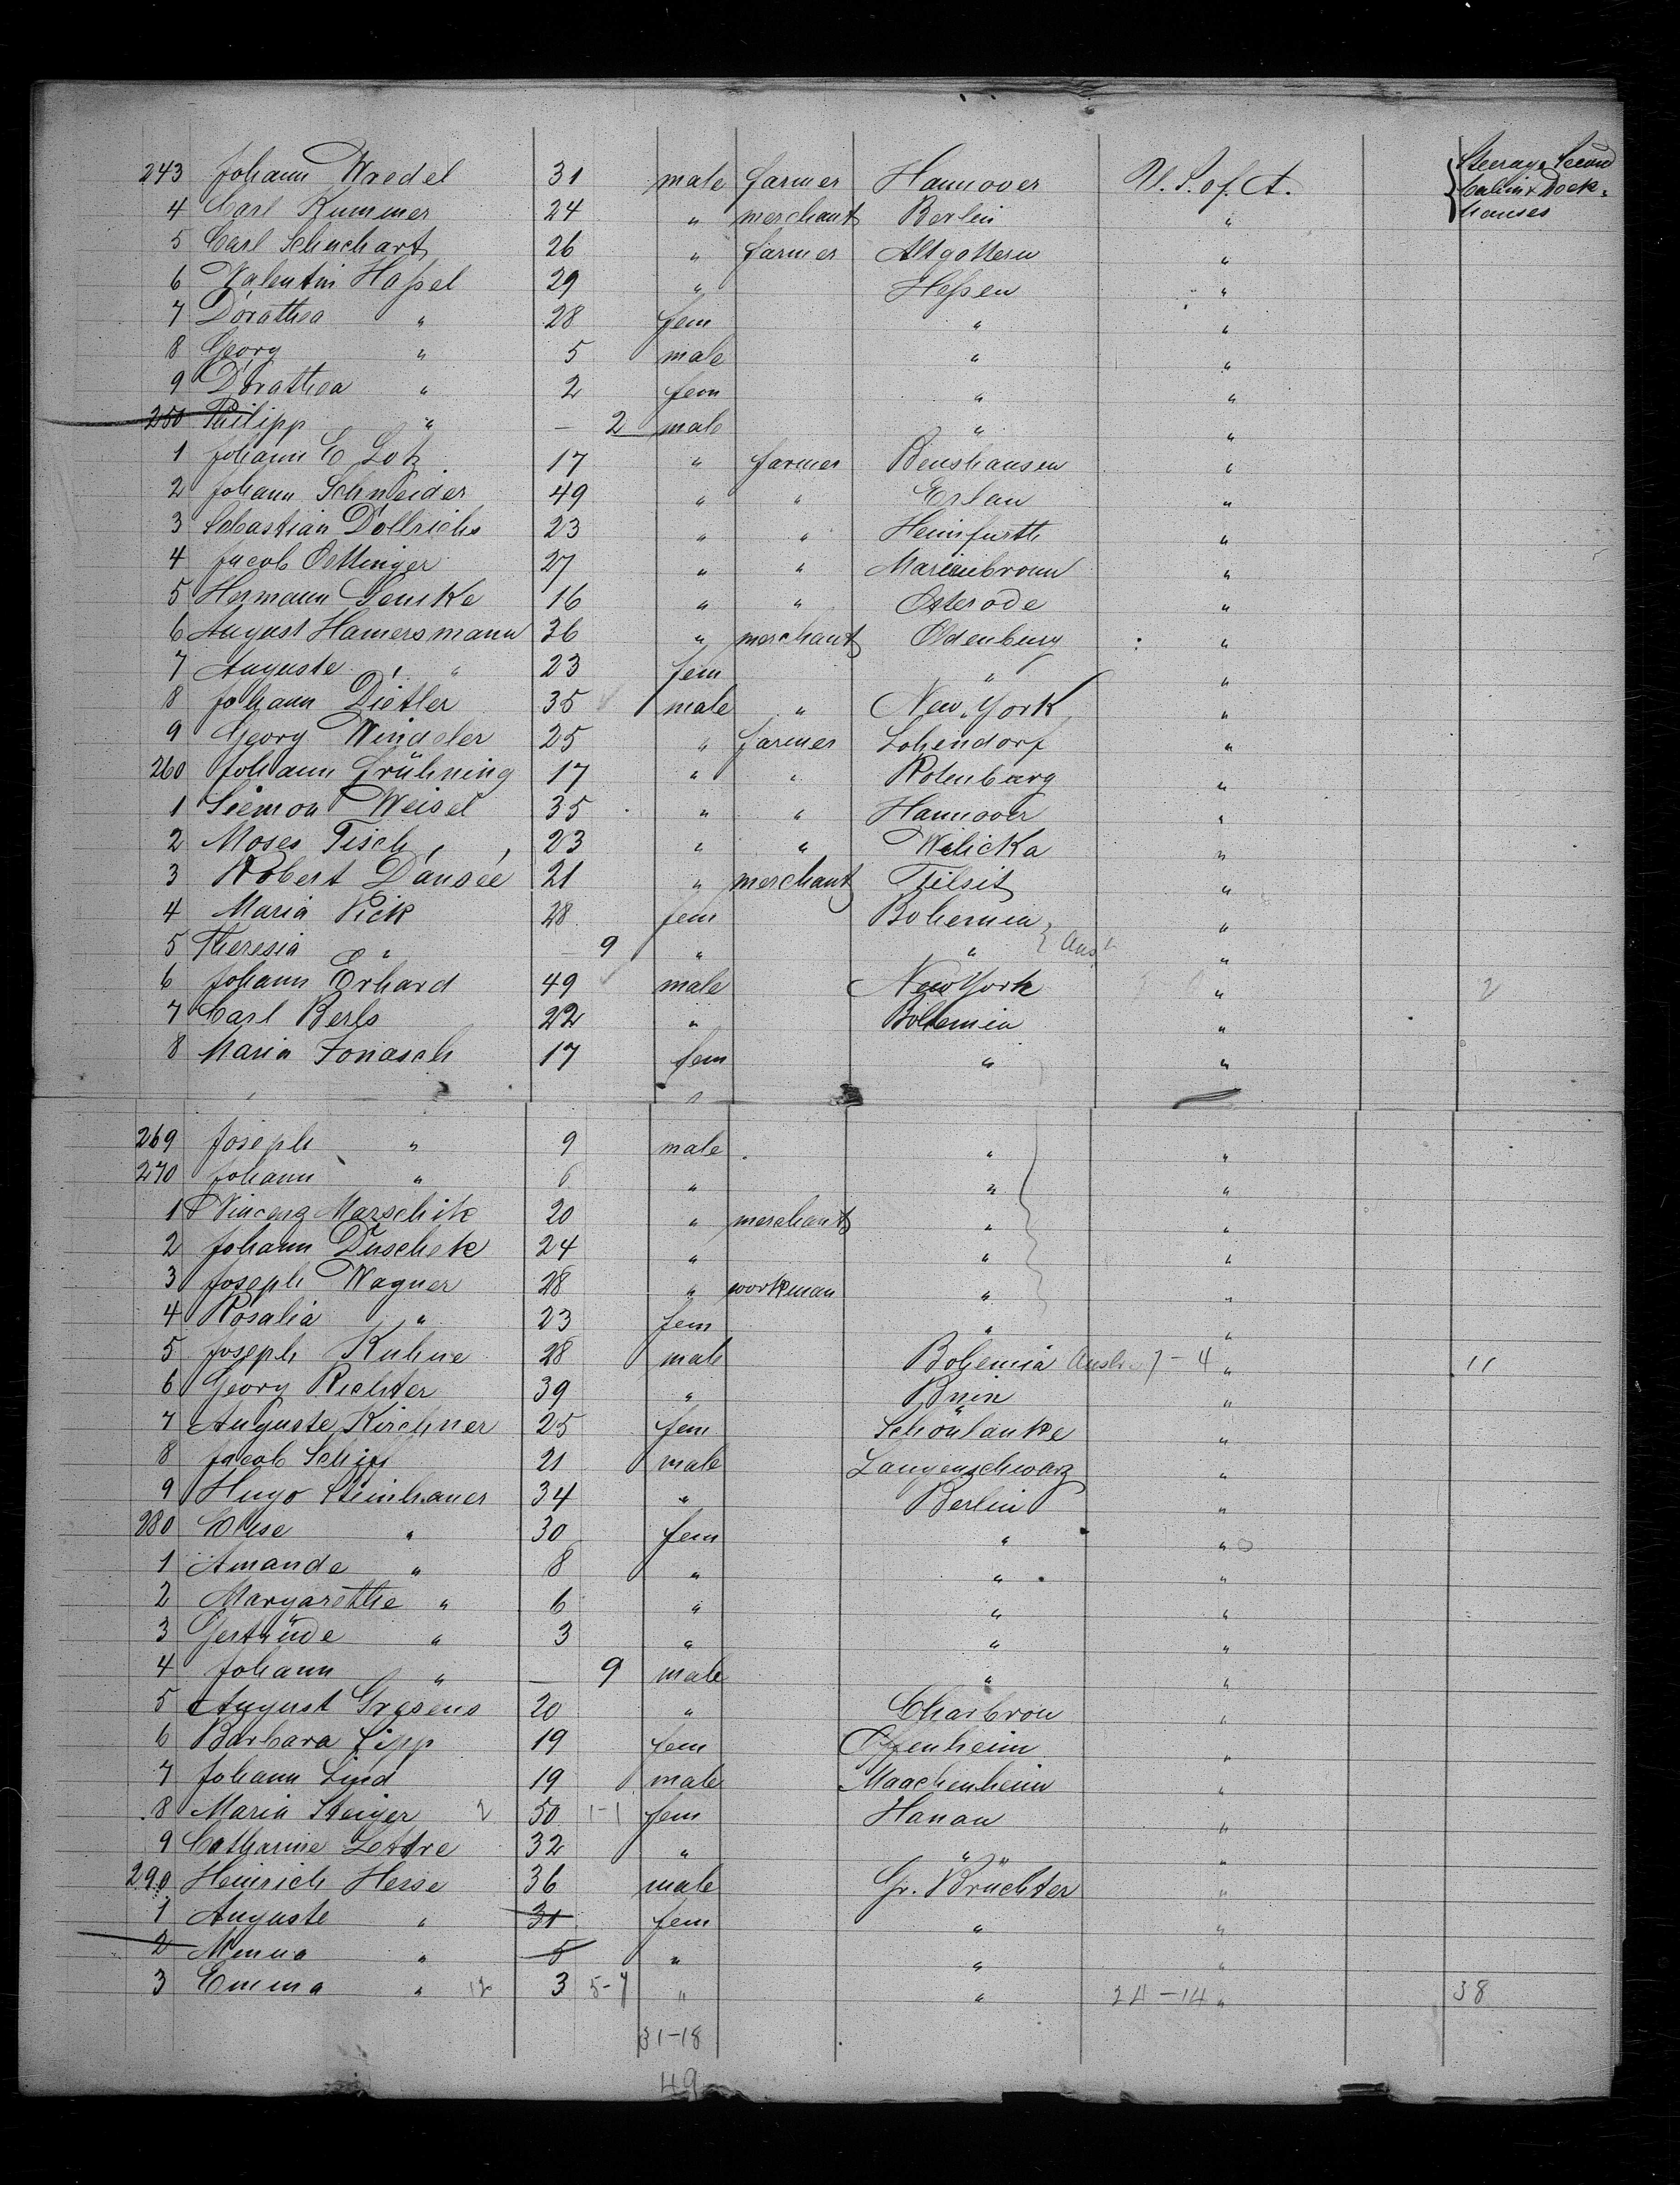 243 Johann Waedel 31 male farmer Hannover U.S. of A. Steerage Second
4 Carl Kummer 24 " merchant Berlin " Cabin & Dock-
houses
5 Carl Schuchart 26 " farmer Altgottern "
6 Valentin Haßel 29 " Heßen "
7 Dorathea " 28 fem " "
8 Georg " 5 male " "
9 Dorathea " 2 fem " "
250 Philipp " — 2 male " "
1 Johann E Lotz 17 " farmer Benshausen "
2 Johann Schneider 49 " " Erlau "
3 Sebastian Dollrichs 23 " " Heinsfurth "
4 Jacob Oettinger 27 " " Marienbronn "
5 Hermann Genske 16 " " Osterode "
6 August Hamersmann 36 " merchant Oldenburg "
7 Auguste " 23 fem " "
8 Johann Dietler 35 male " New-York "
9 Georg Windeler 25 " farmer Lohendorf "
260 Johann Frühning 17 " " Rotenburg "
1 Siemon Weisel 35 " " Hannover "
2 Moses Fisch 23 " " Wilicka "
3 Robert Dansée 21 " merchant Tilsit "
4 Maria Pick 28 fem Bohemia "
5 Theresia " — 9 " " Aus "
6 Johann Erhard 49 male New York " 2
7 Carl Berls 22 " Bohemia "
8 Maria Jonasch 17 fem " "
269 Joseph " 9 male " "
270 Johann " 6 " " "
1 Vincenz Marschik 20 " merchant " "
2 Johann Duschek 24 " " "
3 Joseph Wagner 28 " workman " "
4 Rosalia " 23 fem " "
5 Joseph Kuhne 28 male Bohemia 7-4 " 11
6 Georg Richter 39 " Bnin "
7 Auguste Kirchner 25 fem Schönlanke "
8 Jacob Schiff 21 male Langenschwarz "
9 Hugo Steinhauer 34 " Berlin "
280 Elise " 30 fem " "
1 Amande " 8 " " "
2 Margarethe " 6 " " "
3 Gertrüde " 3 " " "
4 Johann " — 9 male " "
5 August Grasens 20 " Charbrow "
6 Barbara Lipp 19 fem Offenheim "
7 Johann Lind 19 male Maachenheim "
8 Maria Steiger 2 50 1-1 fem Hanau "
9 Catharine Lettre 32 " " " "
290 Heinrich Hesse 36 male Gr. Brüchter "
1 Auguste " 31 fem " "
2 Minna " 5 " " "
3 Emma " 12 3 5-7 " " 24-14 " 38
31-18
49